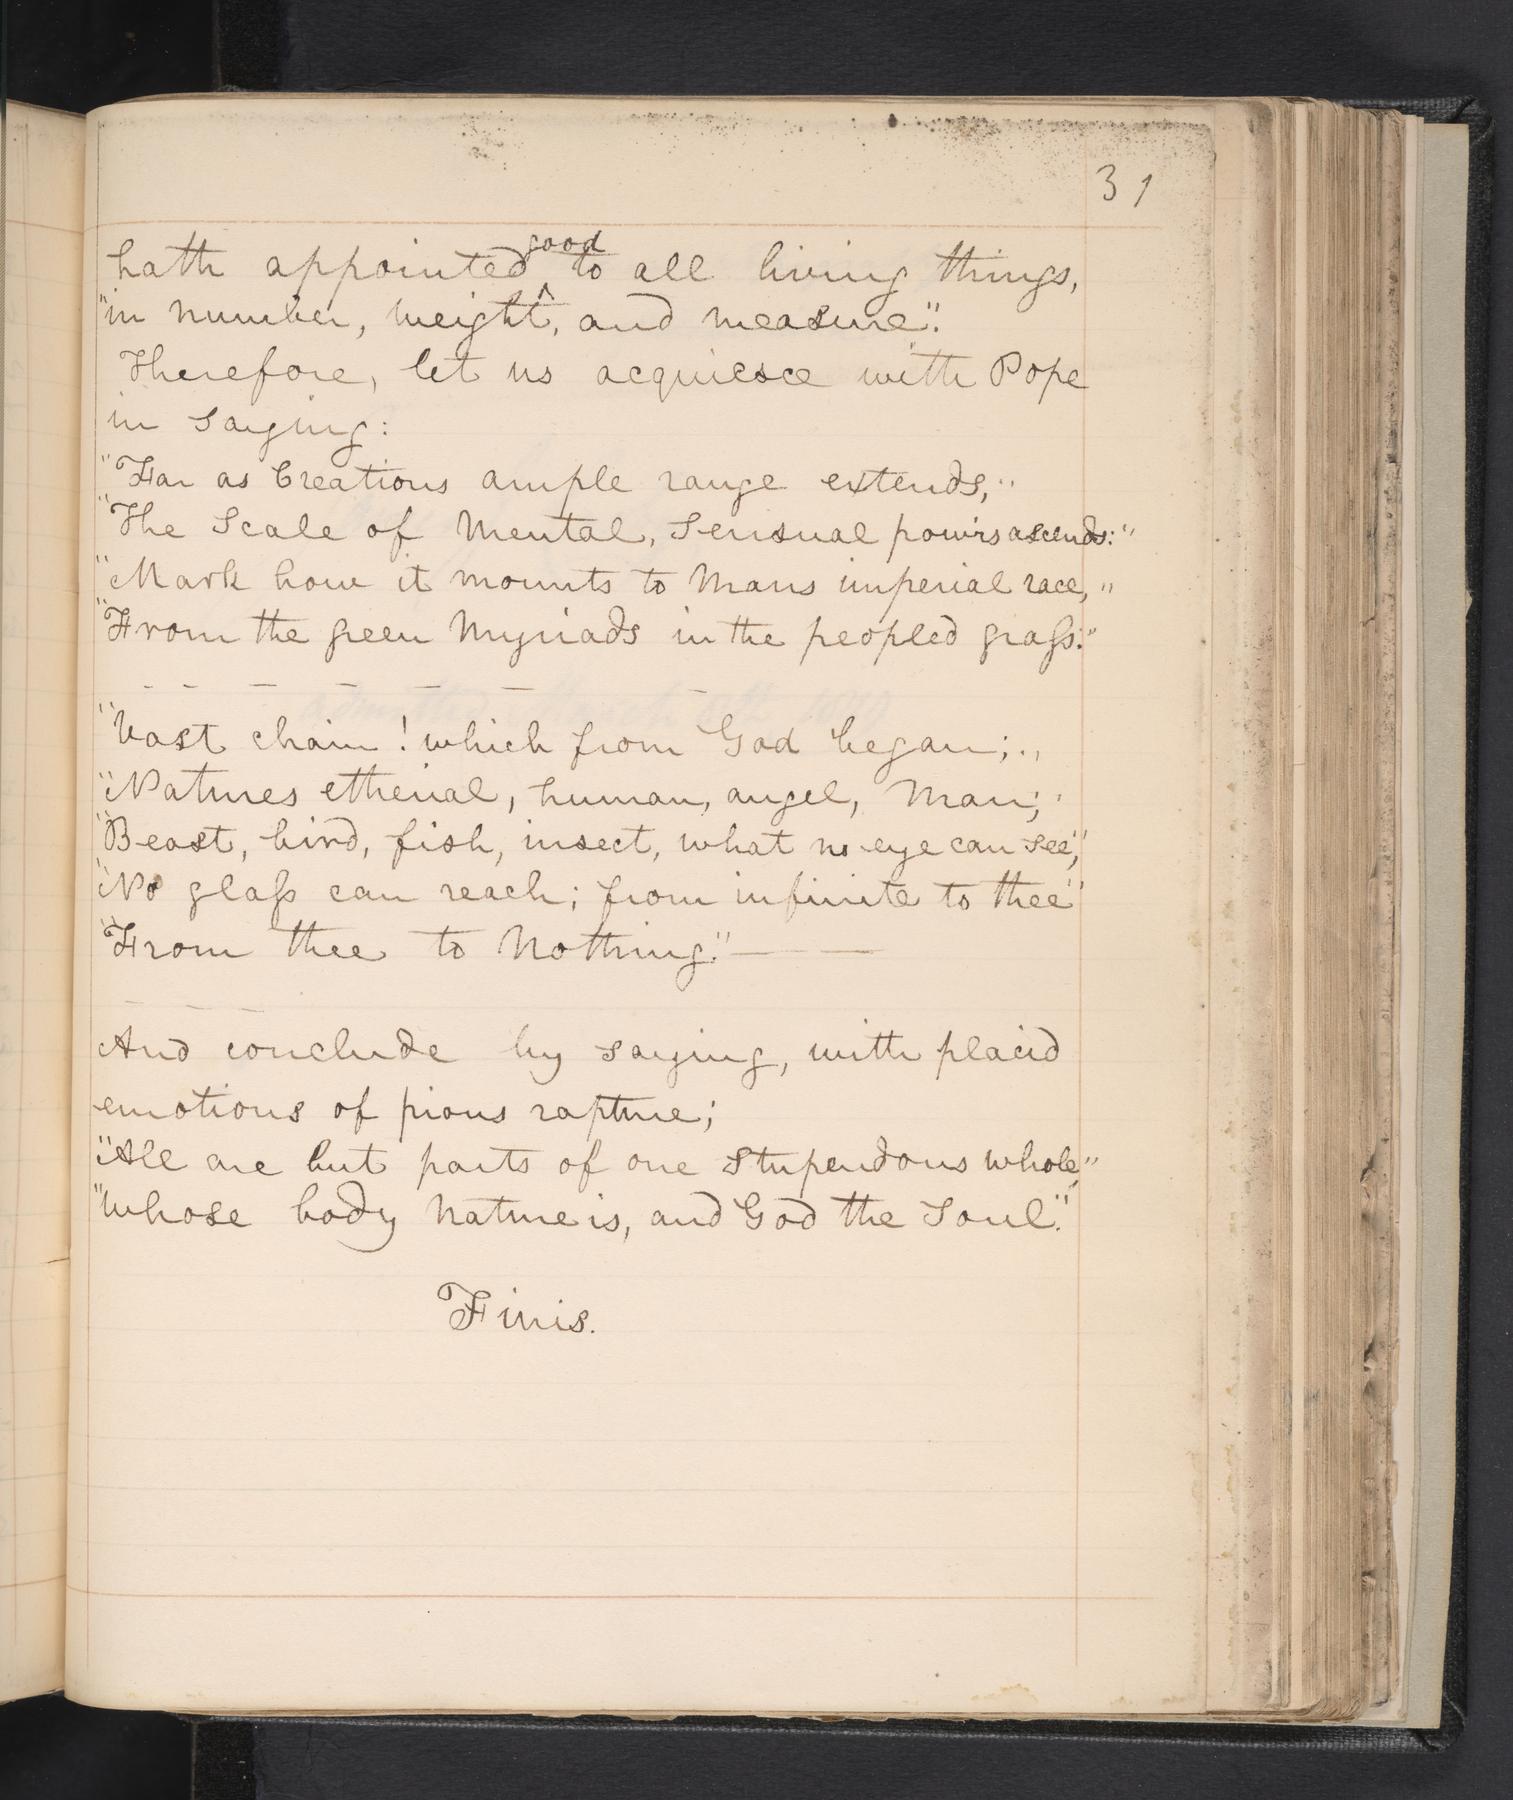 31
hath appointed good to all living things,
"in number, weight, and measure".
Therefore, let us acquiesce with Pope
in saying:
"Far as Creations ample range extends,"
"The Scale of Mental, Sensual pow'rs ascends:"
"Mark how it mounts to Mans imperial race,"
"From the green Myriads in the peopled graſs:"
"Vast chain! which from God began;"
"Natures etherial, human, angel, Man;"
"Beast, bird, fish, insect, what no eye can see,"
"No glaſs can reach; from infinite to thee"
"From thee to Nothing."
And conclude by saying, with placid
emotions of pious rapture;
"All are but parts of one Stupendous whole,"
"Whose body Nature is, and God the Soul."
Finis.